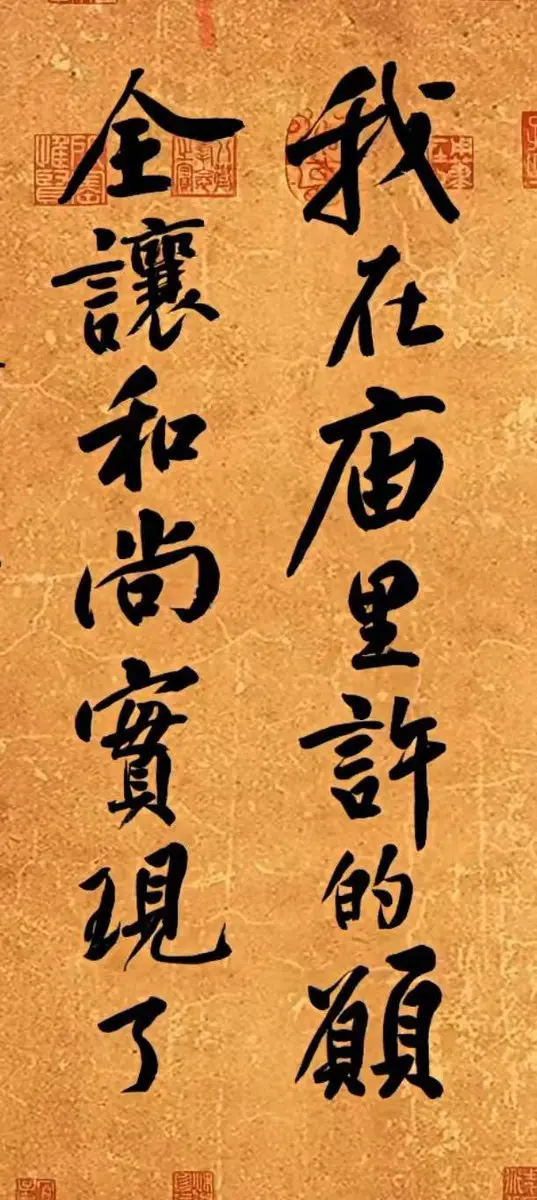 我在庙里許的願
全讓和尚實現了